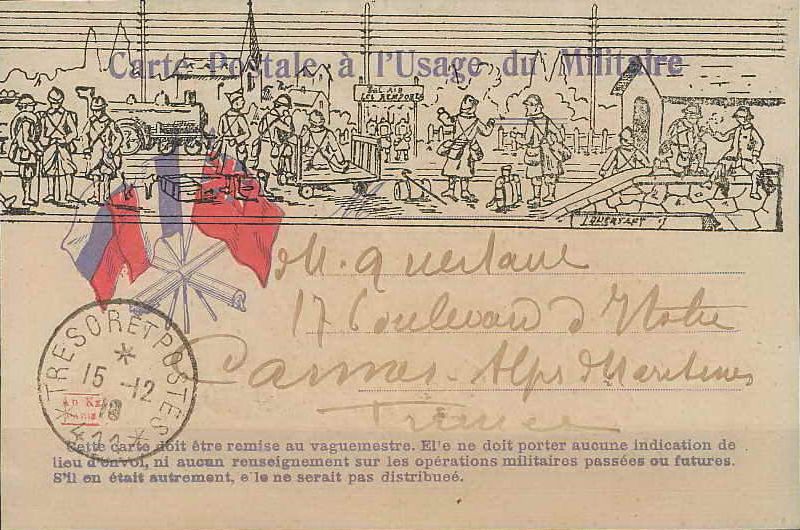 Carte Postale à l'Usage du Militaire
M. Querlaue
17 Boulevard d'
Cannes - Alpes Maritimes
France
TRESOR ET POSTES
15 -12
18
Cette carte doit être remise au vaguemestre. El'e ne doit porter aucune indication de
lieu d'envoi, ni aucun renseignement sur les opérations militaires passées ou futures.
S'il en était autrement, e le ne serait pas distribueé.